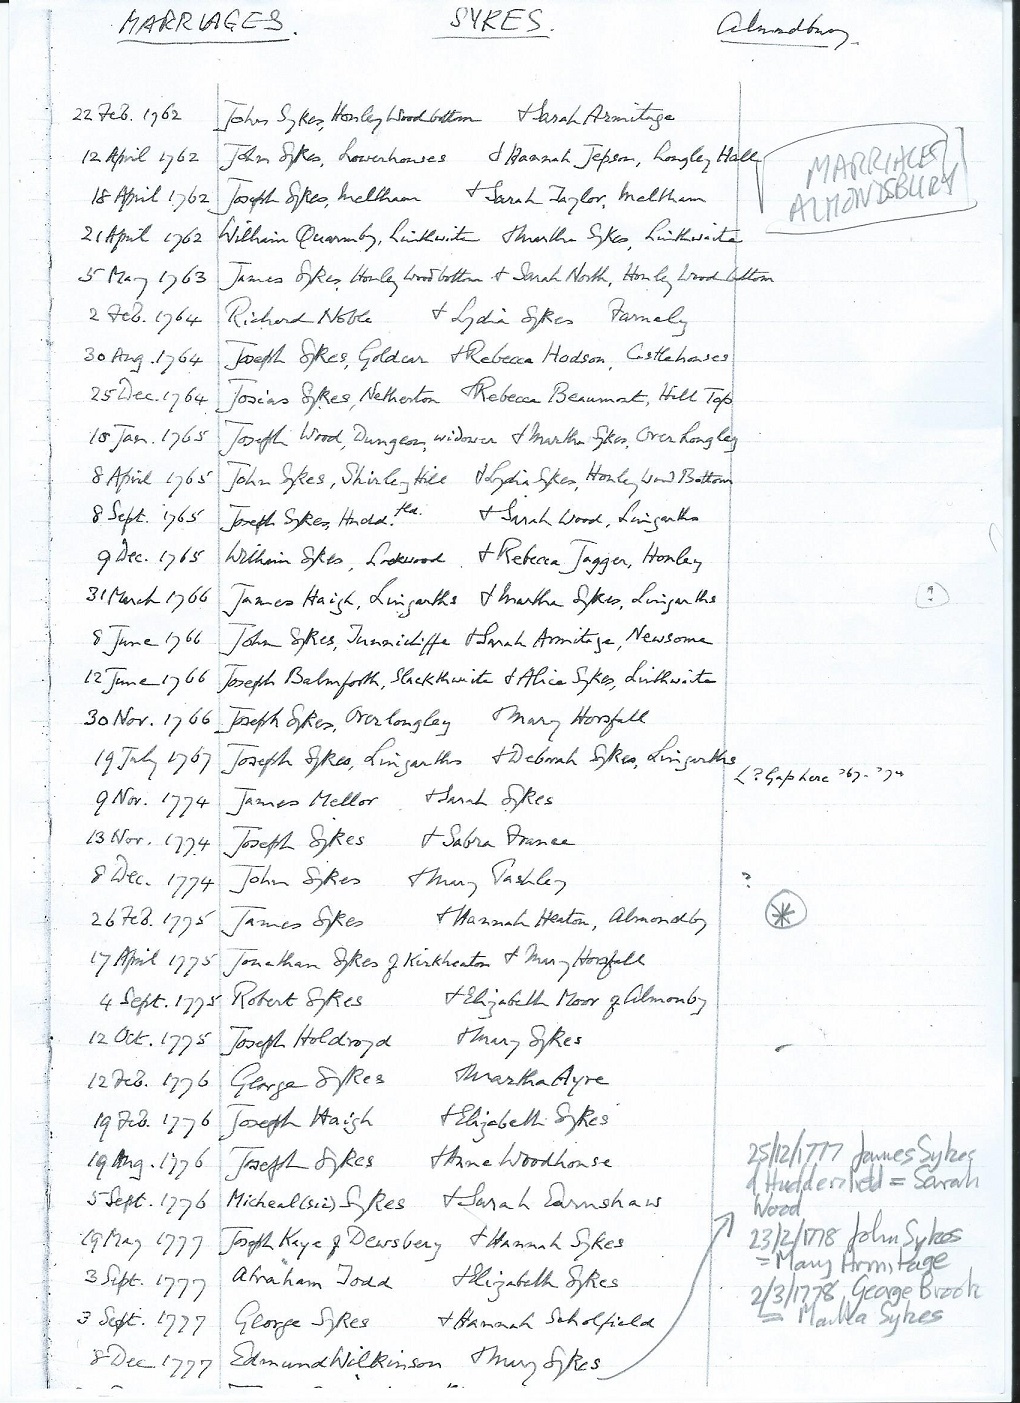 MARRIAGES. SYKES. Almondbury.
MARRIAGES
ALMONDSBURY
22 Feb. 1762 John Sykes, Honley Woodbottom + Sarah Armitage
12 April 1762 John Sykes, Lowerhouses + Hannah Jepson, Longley Hall
18 April 1762 Joseph Sykes, Meltham + Sarah Taylor, Meltham
21 April 1762 William Quarmby, Linthwaite + Martha Sykes, Linthwaite
5 May 1763 James Sykes, Honley Woodbottom + Sarah North, Honley Wood bottom
2 Feb. 1764 Richard Noble + Lydia Sykes Farnely
30 Aug. 1764 Joseph Sykes, Golcar + Rebecca Hodson, Castlehouses
25 Dec. 1764 Josias Sykes, Netherton + Rebecca Beaumont, Hill Top
Jan. 1765 Joseph Wood, Dungeon, widower + Martha Sykes, Over Longley
8 April 1765 John Sykes, Shirley Hill + Lydia Sykes, Honley Wood Bottom
8 Sept. 1765 Joseph Sykes, Hudd.fld. + Sarah Wood, Lingarths
9 Dec. 1765 William Sykes, Lockwood + Rebecca Jagger, Honley
31 March 1766 James Haigh, Lingarths + Martha Sykes, Lingarths
?
8 June 1766 John Sykes, Tunnicliffe + Sarah Armitage, Newsome
12 June 1766 Joseph Balmforth, Slackthwaite + Alice Sykes, Linthwaite
30 Nov. 1766 Joseph Sykes, Over longley + Mary Horsfall
19 July 1767 Joseph Sykes, Lingarths + Deborah Sykes, Lingarths
< ? Gap here '67 - '74
9 Nov. 1774 James Mellor + Sarah Sykes
13 Nov. 1774 Joseph Sykes + Sabra France
8 Dec. 1774 John Sykes + Mary Pashley
?
26 Feb. 1775 James Sykes + Hannah Heaton, Almondby
*
17 April 1775 Jonathan Sykes of Kirkheaton + Mary Horsfall
4 Sept. 1775 Robert Sykes + Elizabeth Moor of Almonby
12 Oct. 1775 Joseph Holdroyd + Mary Sykes
12 Feb. 1776 George Sykes + Martha Ayre
19 Feb. 1776 Joseph Haigh + Elizabeth Sykes
19 Aug. 1776 Joseph Sykes + Anne Woodhouse
5 Sept. 1776 Micheal (sic) Sykes + Sarah Earnshaw
19 May 1777 Joseph Kaye of Dewsbery + Hannah Sykes
3 Sept. 1777 Abraham Todd + Elizabeth Sykes
3 Sept. 1777 George Sykes + Hannah Scholfield
8 Dec 1777 Edmund Wilkinson + Mary Sykes
25/12/1777 James Sykes
of Huddersfield = Sarah
Wood
23/2/1778 John Sykes
= Mary Armitage
2/3/1778 George Brook
= Martha Sykes